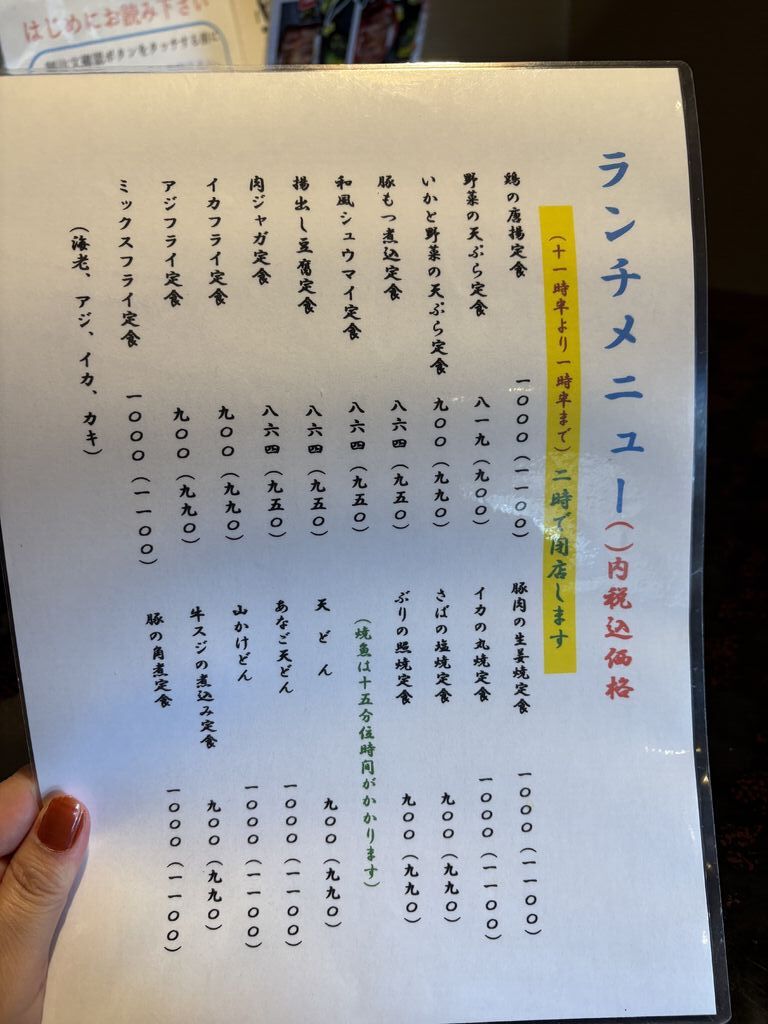 はじめにお読み下さい
ランチメニュー（）内税込価格
（十一時半より一時半まで）二時で閉店します
鶏の唐揚定食 一〇〇〇（一一〇〇）
野菜の天ぷら定食 八一九（九〇〇）
いかと野菜の天ぷら定食 九〇〇（九九〇）
豚もつ煮込定食 八六四（九五〇）
和風シュウマイ定食 八六四（九五〇）
揚出し豆腐定食 八六四（九五〇）
肉ジャガ定食 八六四（九五〇）
イカフライ定食 九〇〇（九九〇）
アジフライ定食 九〇〇（九九〇）
ミックスフライ定食 一〇〇〇（一一〇〇）
（海老、アジ、イカ、カキ）
豚肉の生姜焼定食 一〇〇〇（一一〇〇）
イカの丸焼定食 一〇〇〇（一一〇〇）
さばの塩焼定食 九〇〇（九九〇）
ぶりの照焼定食 九〇〇（九九〇）
（焼魚は十五分位時間がかかります）
天どん 九〇〇（九九〇）
あなご天どん 一〇〇〇（一一〇〇）
山かけどん 一〇〇〇（一一〇〇）
牛スジの煮込み定食 九〇〇（九九〇）
豚の角煮定食 一〇〇〇（一一〇〇）